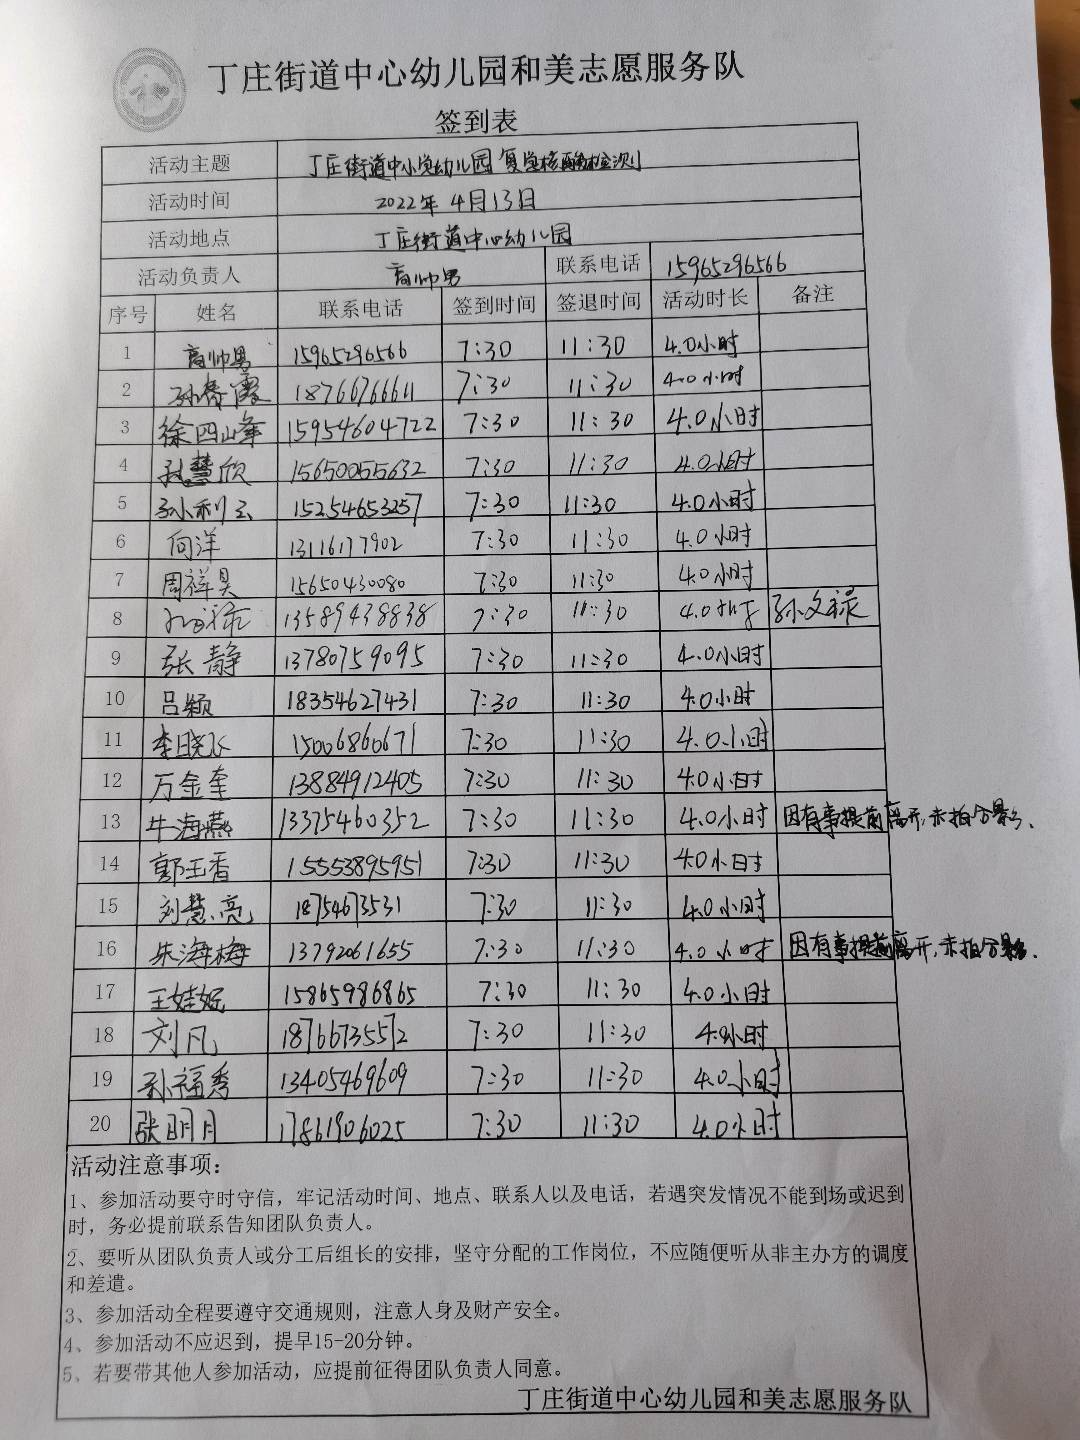 丁庄街道中心幼儿园和美志愿服务队
签到表
活动主题 丁庄街道中小学幼儿园复学核酸检测
活动时间 2022年4月13日
活动地点 丁庄街道中心幼儿园
活动负责人 高帅男 联系电话 15965296566
序号 姓名 联系电话 签到时间 签退时间 活动时长 备注
1 高帅男 15965296566 7:30 11:30 4.0小时
2 孙春霞 18766766611 7:30 11:30 4.0小时
3 徐四峰 15954604722 7:30 11:30 4.0小时
4 孙慧欣 15650055632 7:30 11:30 4.0小时
5 孙利玉 15254653257 7:30 11:30 4.0小时
6 向洋 13116177902 7:30 11:30 4.0小时
7 周祥昊 15650430080 7:30 11:30 4.0小时
8 孙文禄 13589438838 7:30 11:30 4.0小时 孙文禄
9 张静 13780759095 7:30 11:30 4.0小时
10 吕颖 18354627431 7:30 11:30 4.0小时
11 李晓飞 15006860671 7:30 11:30 4.0小时
12 万金奎 13884912405 7:30 11:30 4.0小时
13 牛海燕 13375460352 7:30 11:30 4.0小时 因有事提前离开,未拍合影。
14 郭玉香 15553895951 7:30 11:30 4.0小时
15 刘慧亮 18754673531 7:30 11:30 4.0小时
16 朱海梅 13792061655 7:30 11:30 4.0小时 因有事提前离开,未拍合影。
17 王娃妮 15865986865 7:30 11:30 4.0小时
18 刘凡 18766735572 7:30 11:30 4.0小时
19 孙福秀 13405469609 7:30 11:30 4.0小时
20 张明月 17861906025 7:30 11:30 4.0小时
活动注意事项:
1、参加活动要守时守信，牢记活动时间、地点、联系人以及电话，若遇突发情况不能到场或迟到
时，务必提前联系告知团队负责人。
2、要听从团队负责人或分工后组长的安排，坚守分配的工作岗位，不应随便听从非主办方的调度
和差遣。
3、参加活动全程要遵守交通规则，注意人身及财产安全。
4、参加活动不应迟到，提早15-20分钟。
5、若要带其他人参加活动，应提前征得团队负责人同意。
丁庄街道中心幼儿园和美志愿服务队